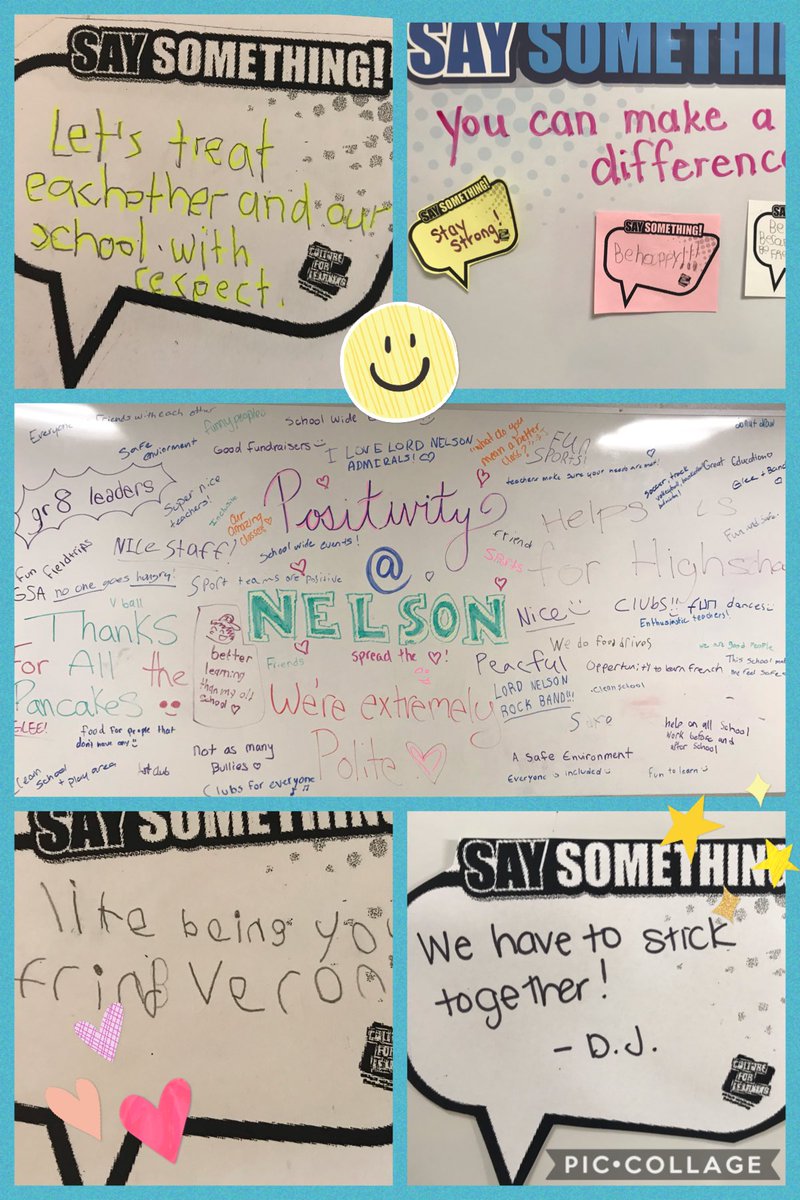 SAY SOMETHING!
Let's treat
eachother and our
school with
respect.
CULTURE
FOR
LEARNING
SAY SOMETHIN
You can make a
difference
SAY SOMETHING!
Stay
Strong!
SAY SOMETHING!
Be happy!!!
SA
Be
Be
Everyone
Friends with each other
funny people
School wide
Safe
enviorment
Good fundraisers
I LOVE LORD NELSON
ADMIRALS!
"what do you
mean a better
class?"
FUN
SPORTS!
teachers make sure your needs are met!
Great Education
Glee + Band
gr 8 leaders
Super nice
teachers!
Inclusive
Our
amazing
classes
Positivity
@
NELSON
School wide events!
Friend
Sports
Helps us
for Highschool
Fun and safe
Fun fieldtrips
NICE STAFF!
GSA no one goes hungry!
Sport teams are positive
V ball
Thanks
For All the
Pancakes
better
learning
than my old
school
Friends
spread the !
Nice
CLUBS!! fun dances
Enthusiastic teachers!
We do food drives
we are good people
Peacful
Opportunity to learn french
This school makes
me feel safe
LORD NELSON
ROCK BAND!!!
clean school
We're extremely
Polite
GLEE!
food for people that
don't have any
Not as many
Bullies
Clean
school
+ play area
Clubs for everyone!
help on all School
work before and
after School
A Safe Environment
Everyone is included
Fun to learn
SAY SOMETHING
like being you
frind Veron
CULTURE
FOR
LEARNING
SAY SOMETHING
We have to stick
together!
- D.J.
CULTURE
FOR
LEARNING
PIC•COLLAGE